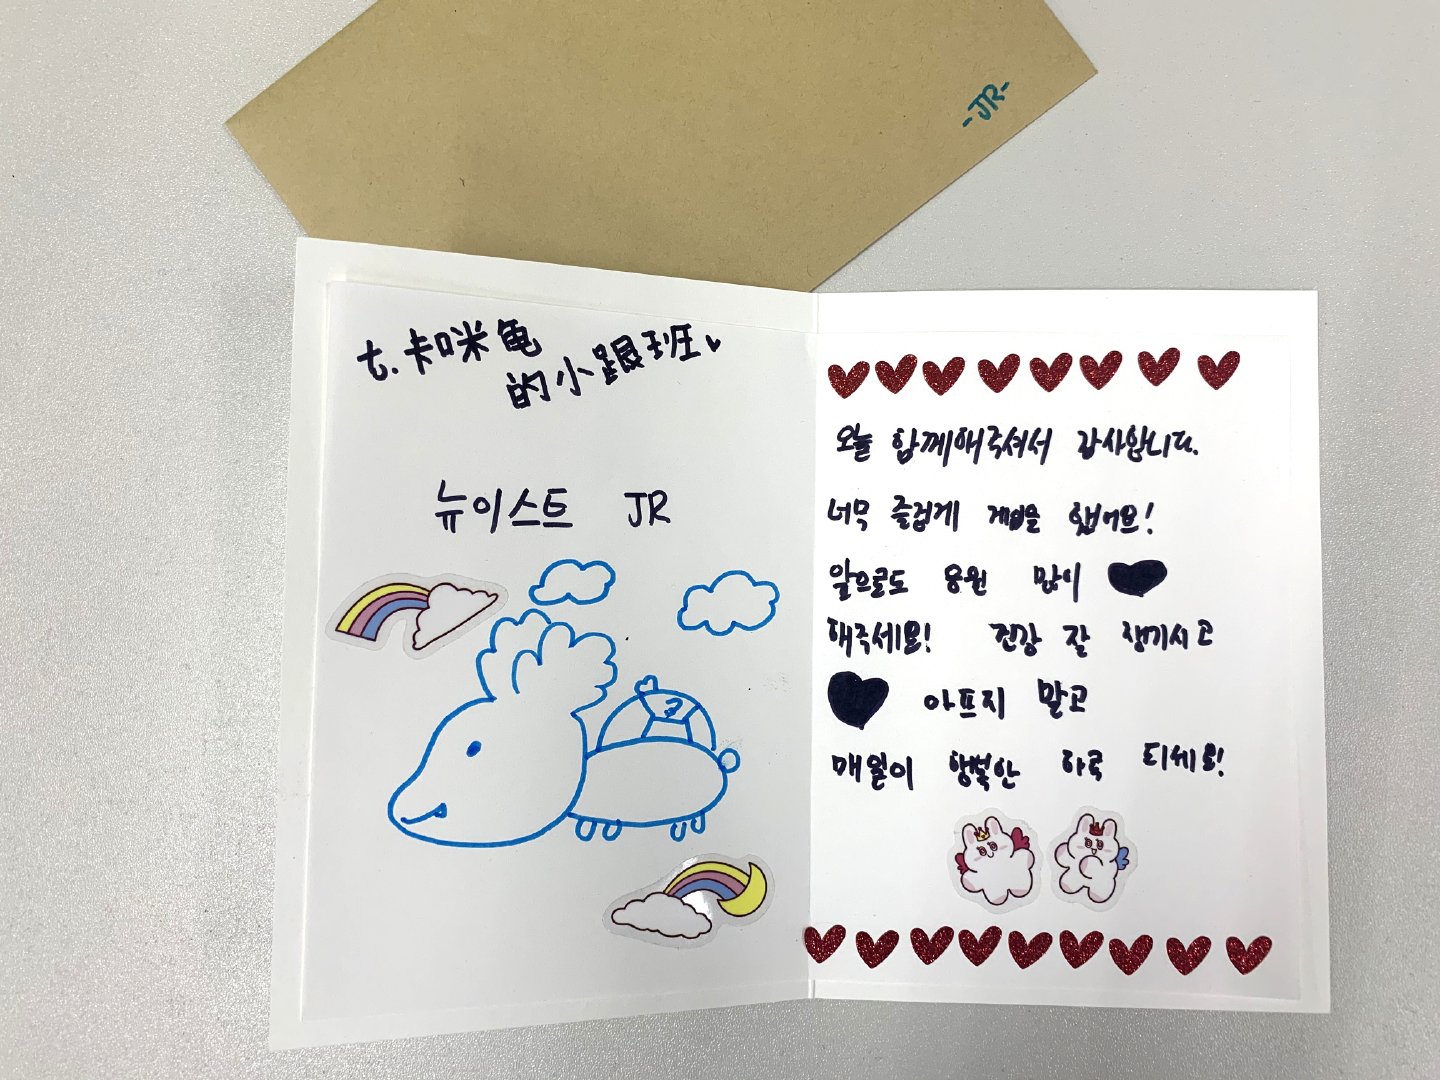 -JR-
t.卡咪龟
的小跟班
뉴이스트 JR
오늘 함께해주셔서 감사합니다.
너무 즐겁게 게임을 했어요!
앞으로도 응원 많이
해주세요! 건강 잘 챙기시고
아프지 말고
매일이 행복한 하루 되세요!